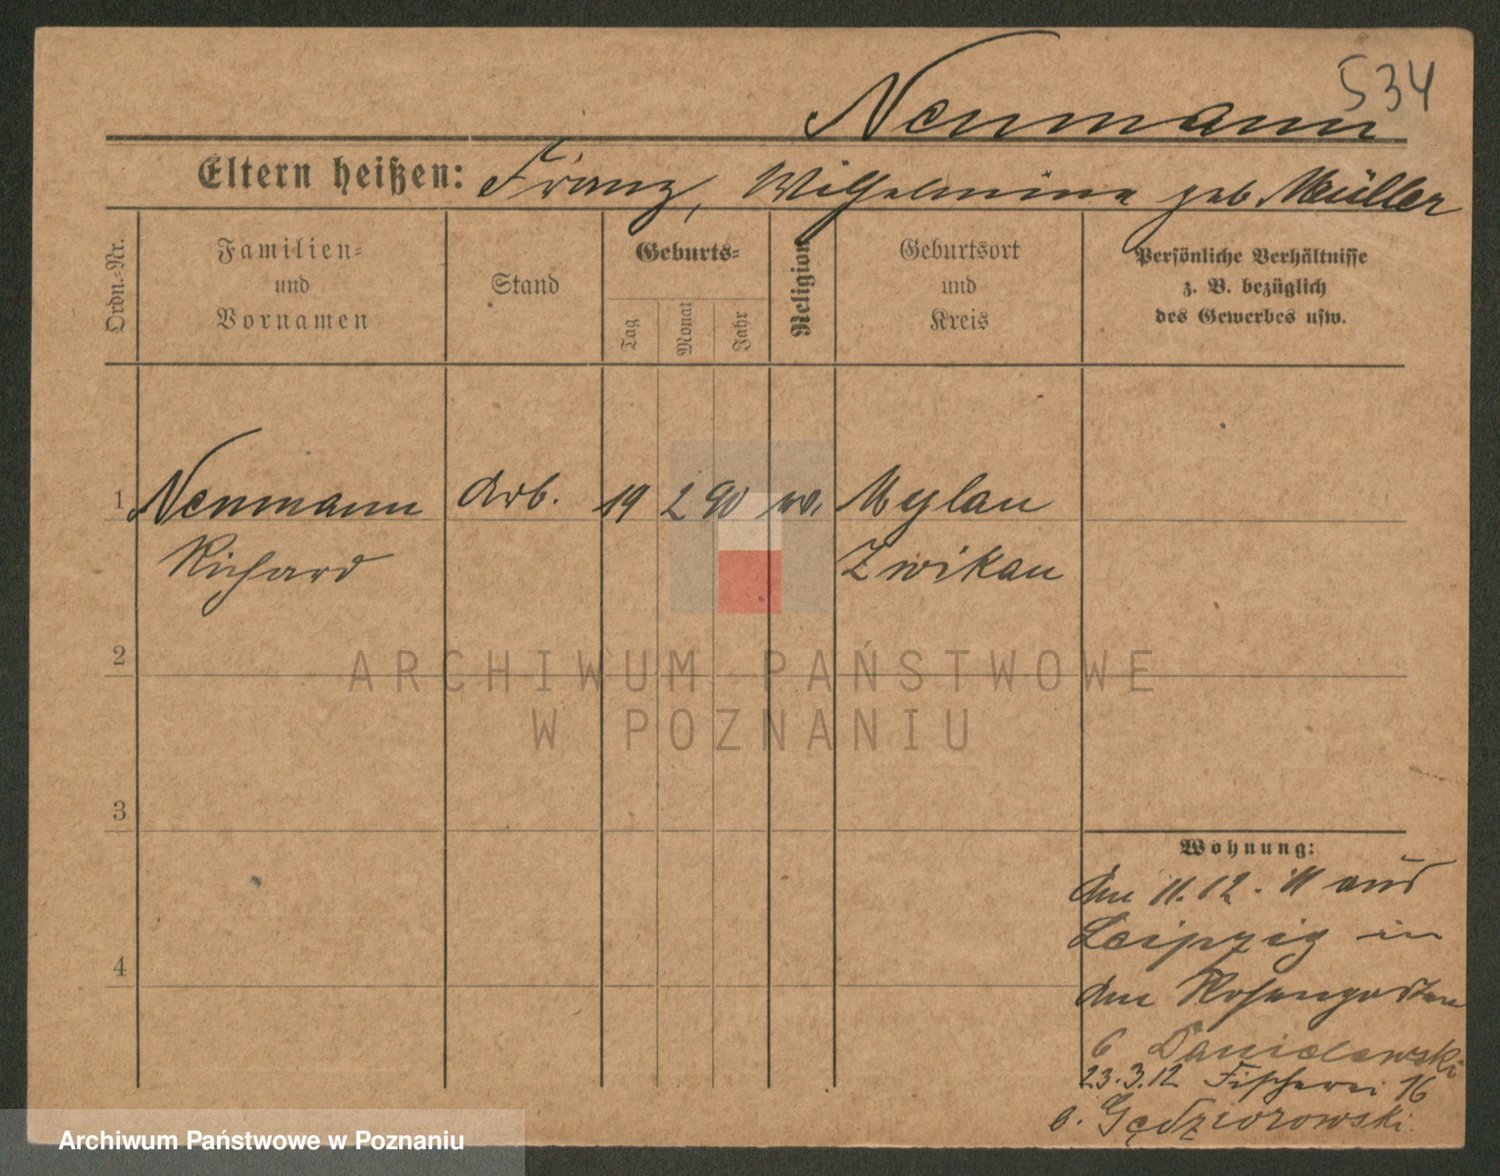 534
Neumann
Eltern heißen: Franz, Wilhelmine geb. Müller
Ordn.-Nr.
Familien-
und
Vornamen
Stand
Geburts-
Tag
Monat
Jahr
Religion
Geburtsort
und
Kreis
Persönliche Verhältnisse
z. B. bezüglich
des Gewerbes usw.
1 Neumann Arb. 19 2 90 Mylau
Richard Zwikau
2
ARCHIWUM PAŃSTWOWE
W POZNANIU
3
4
Wohnung:
den 11.12.11 aus
Leipzig in
den Rosengarten
6 Danielewski
23.3.12 Fischerei 16
b. Gędziorowski.
Archiwum Państwowe w Poznaniu